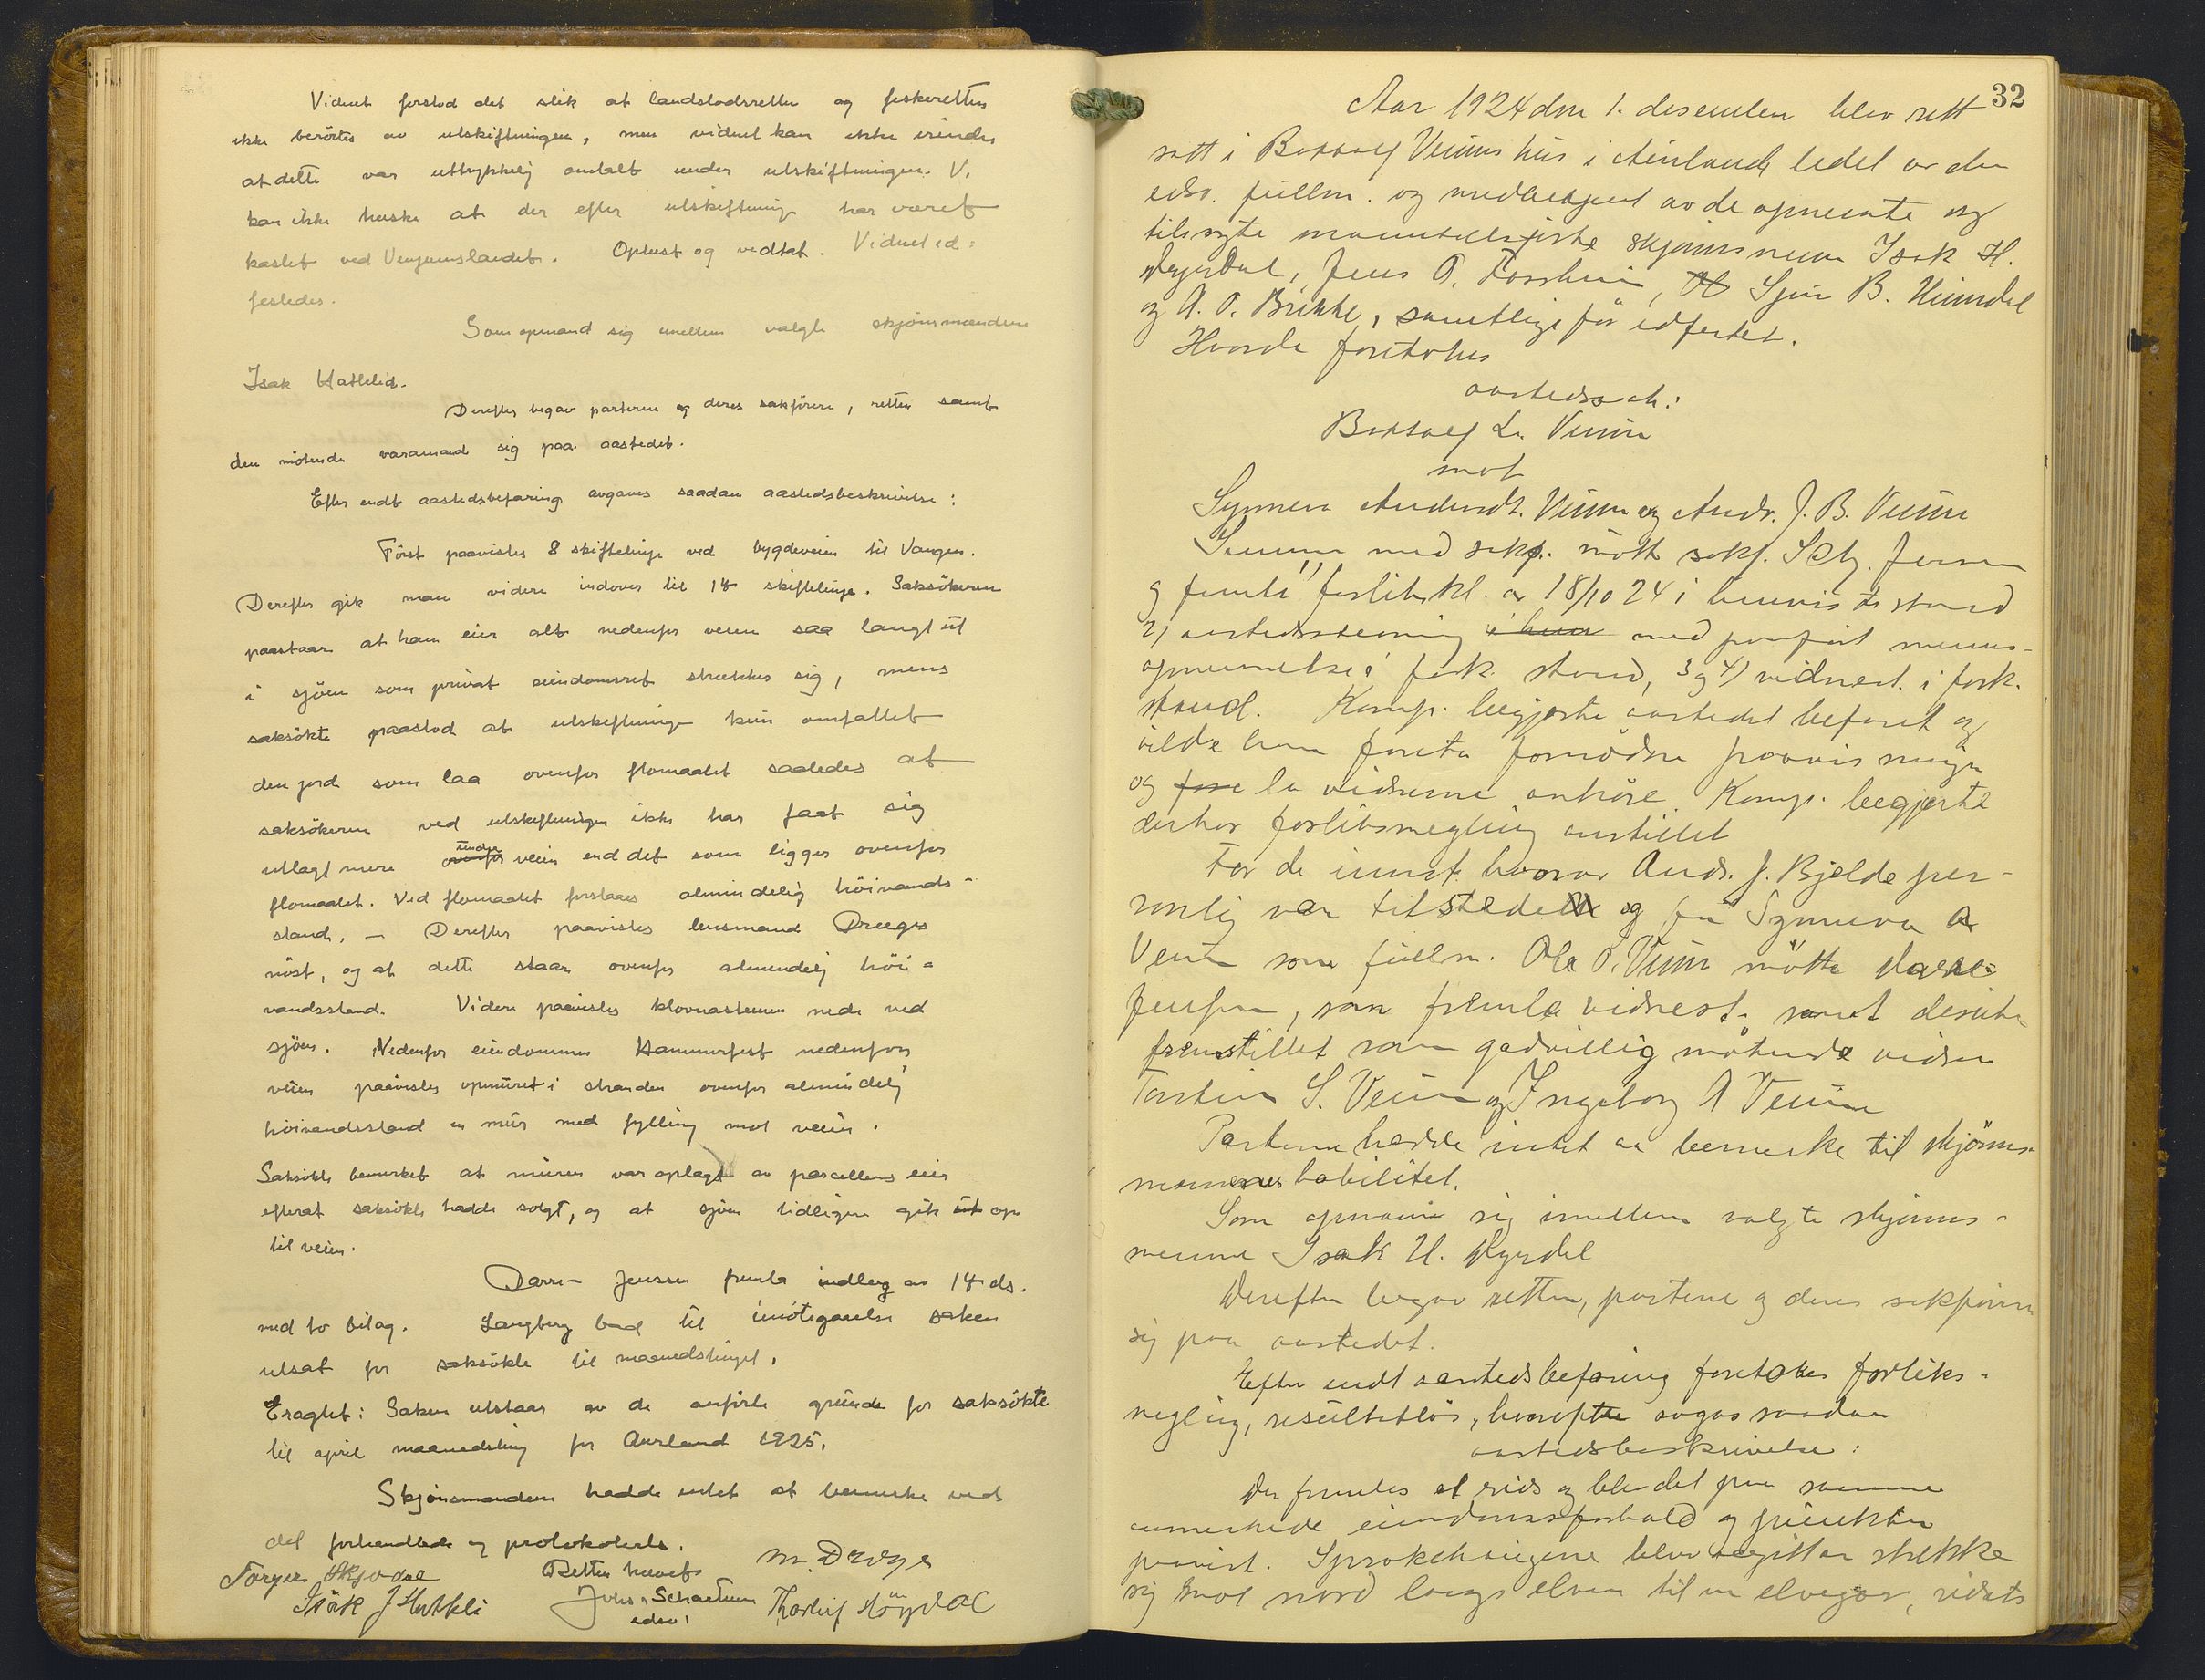 Vidnet forstod det slik at landslodsretten og fiskeretten
ikke berörtes av utskiftningen, men vidnet kan ikke erindre
at dette var uttrykkelig omtalt under utskiftningen. V.
kan ikke huske at der efter utskiftning har været
kastet ved Vengumslandet. Oplæst og vedtat. Vidnet ed:
festedes.
Som opmand sig imellem valgte skjönsmændene
Isak Hatlelid.
Derefter begav parterne og deres sakförere, retten samt
den mötende varamand sig paa aastedet.
Efter endt aastedsbefaring avgaves saadan aastedsbeskrivelse:
Först paavistes 8 skiftelinje ved bygdeveien til Vangen.
Derefter gik man videre indover til 14 skiftelinje. Saksökeren
paastaar at han eier alt nedenfor veien saa langt ut
i sjöen som privat eiendomsret strekker sig, mens
saksökte paastod at utskiftningen kun omfattet
den jord som laa ovenfor flomaalet saaledes at
saksökeren ved utskiftningen ikke har faat sig
utlagt mere ovenfor under veien end det som ligger ovenfor
flomaalet. Ved flomaalet forstaaes almindelig höivands-
stand. — Derefter paavistes lensmand Dreeges
nöst, og at dette staar ovenfor almendelig höi-
vandsstand. Videre paavistes klovnasteinen nede ved
sjöen. Nedenfor eiendommen Hammerfest nedenfor
veien paavistes opmuret i stranden ovenfor almindelig
höivandsstand en mur med fylling mot veien.
Saksökte bemerket at muren var oplagt av parcellens eier
efterat saksökte hadde solgt, og at sjöen tidligere gik ut op
til veien.
Darre-Jenssen fremla indlæg av 14 ds.
med to bilag. Langberg bad til imötegaaelse saken
utsat for saksökte til maanedstinget.
Eragtet: Saken utstaar av de anförte grunde for saksökte
til april maanedsting for Aurland 1925.
Skjönsmændene hadde intet at bemerke ved
det forhandlede og protokolerte.
Retten hævet
M. Drege
Torger Skjerdal
Isak J Hatleli
Johs. Schartum
edsv.
Thorleif Höydal
32
Aar 1924 den 1. desember blev rett
satt i Botolf Veums hus i Aurland ledet av den
edsv. fullm. og medbetjent av de opnevnte og
tilsagte mannskjönste skjönnsmenn Isak H.
Dyrdal, Jens O. Forsheim, Sjur B. Heimdal
og A. O. Brekke, samtlige för edfestet.
Hvorda foretokes
aastedssak:
Botolf L. Veum
mot
Synneva Andersdt. Veum og Andr. J. B. Veum
Samme med sakf. mötte sakf. Jensen
og fremla 1) forlikskl. av 18/10 24 i bevist stand
2) aastedsstevning i hua med paaført menns-
opnevnelse i fork. stand, 3 og 4) vidnest. i fork.
stand. Komp. begjærte aastedet befaret og
vilde han foreta fornödne paavisninger
og fore la vidnerne avhöre. Komp. begjærte
derhos forliksmegling anstillet
For de innst. hvorav Andr. J. Bjelde per-
sonlig var tilstede og for Synneva A
Veum som fullm. Ole O. Veum mötte Darre-
Jensen, som fremla vidnest. samt desuten
fremstillet som godvillig mötende vidner
Torstein S. Veum og Ingeborg A Veum
Parterne hadde intet aa bemerke til skjönns-
mennenes habilitet.
Som opmann sig imellem valgte skjönns-
mennene Isak H. Dyrdal
Derefter begav retten, partene og deres sakförere
sig paa aastedet.
Efter endt aastedsbefaring foretokes forliks-
megling, resultatlös, hvorefter avgaves saadan
aastedsbeskrivelse:
Der fremla et rids og blev det paa samme
anmerkede eiendomsforhold og punkter
paavist. blev opgitt aa strekke
sig mot nord langs elven til en elvegar, vidst